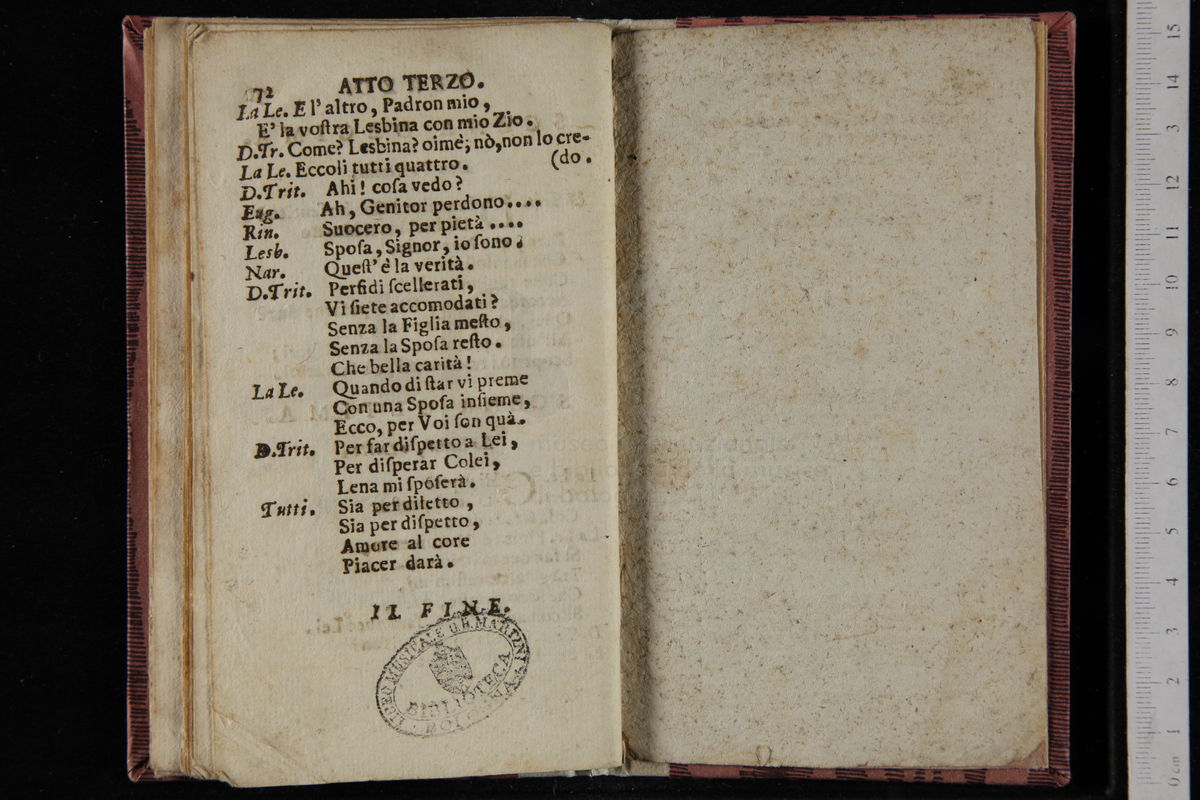 72 ATTO TERZO.
La Le. E l'altro, Padron mio,
E' la voſtra Lesbina con mio Zio.
D.Tr. Come? Lesbina? oimè; nò, non lo cre-
La Le. Eccoli tutti quattro. (do.
D.Trit. Ahi! coſa vedo?
Eug. Ah, Genitor perdono....
Rin. Suocero, per pietà ....
Lesb. Spoſa, Signor, io ſono.
Nar. Queſt' è la verità.
D.Trit. Perfidi ſcellerati,
Vi ſiete accomodati?
Senza la Figlia meſto,
Senza la Spoſa reſto.
Che bella carità!
La Le. Quando di ſtar vi preme
Con una Spoſa inſieme,
Ecco, per Voi ſon quà.
D.Trit. Per far diſpetto a Lei,
Per diſperar Colei,
Lena mi ſpoſerà.
Tutti. Sia per diletto,
Sia per diſpetto,
Amore al core
Piacer darà.
IL FINE.
LICEO MUSICALE G.B. MARTINI
BIBLIOTECA
BOLOGNA
0 cm 1 2 3 4 5 6 7 8 9 10 11 12 13 14 15